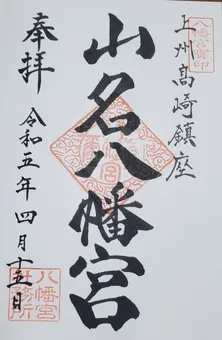 上州高崎鎮座
八幡宮寶印
山名八幡宮
奉拝
令和五年四月十五日
八幡宮
社務所